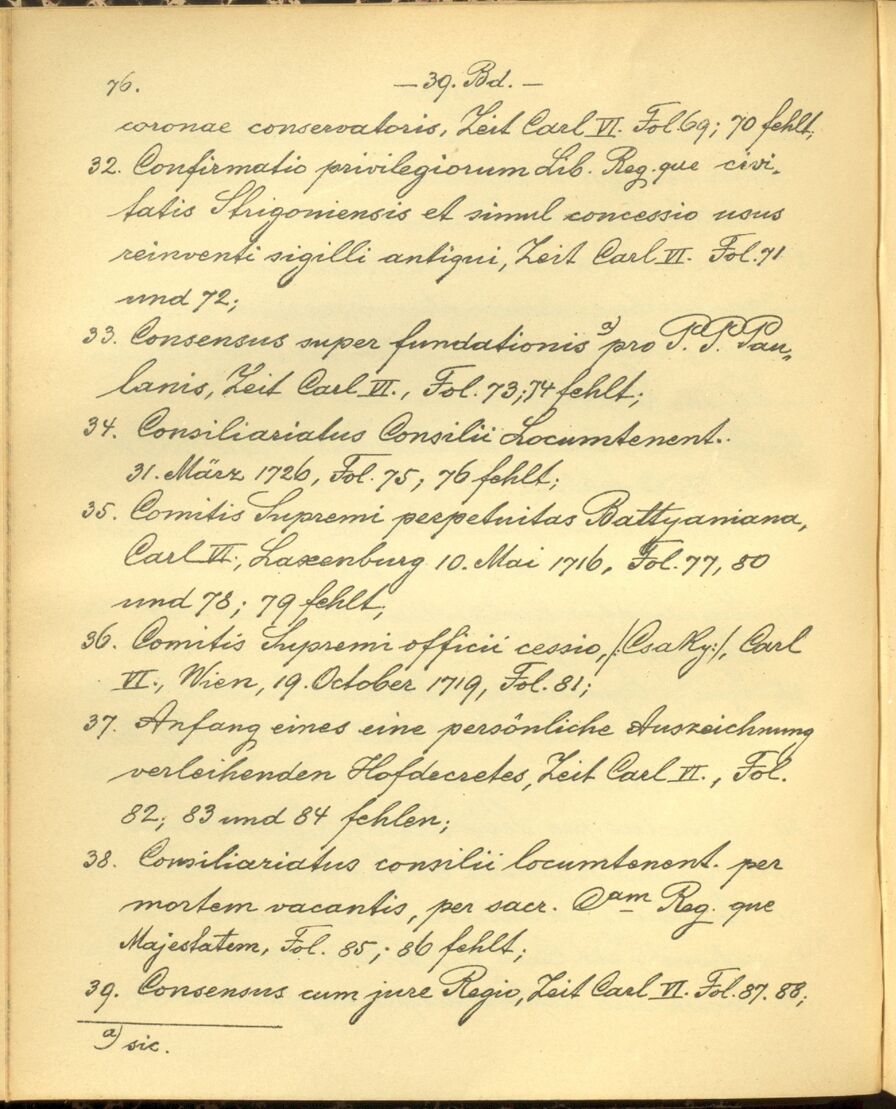 76. — 39. Bd. —
coronae conservatoris, Zeit Carl VI. Fol 69; 70 fehlt;
32. Confirmatio privilegiorum Lib. Reg. que civi„
tatis Strigoniensis et simul concessio usus
reinventi sigilli antiqui, Zeit Carl VI. Fol. 71
und 72;
33. Consensus super fundationis a) pro P. P. Pau„
lanis, Zeit Carl VI., Fol. 73; 74 fehlt;
34. Consiliariatus Consilii Locumtenent..
31. März 1726, Fol. 75; 76 fehlt;
35. Comitis Supremi perpetuitas Battyaniana,
Carl VI., Laxenburg 10. Mai 1716, Fol. 77, 80
und 78; 79 fehlt;
36. Comitis Supremi officii cessio, /:Csaky:/, Carl
VI., Wien, 19. October 1719, Fol. 81;
37. Anfang eines eine persönliche Auszeichnung
verleihenden Hofdecretes, Zeit Carl VI., Fol.
82; 83 und 84 fehlen;
38. Consiliariatus consilii locumtenent. per
mortem vacantis, per sacr. Cam Reg. que
Majestatem, Fol. 85; 86 fehlt;
39. Consensus cum jure Regio, Zeit Carl VI. Fol. 87. 88;
a) sic.